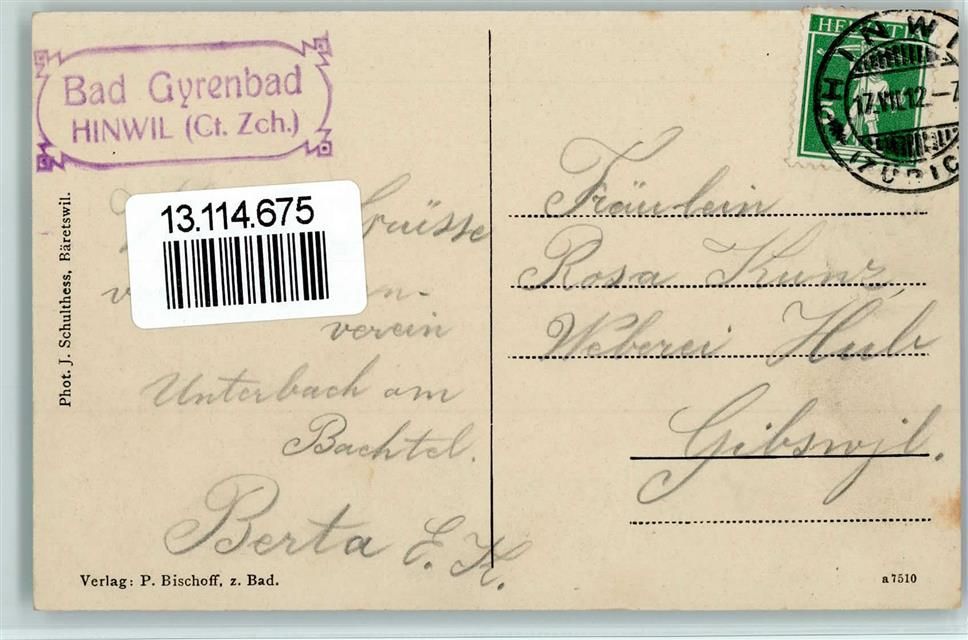 Bad Gyrenbad
HINWIL (Ct. Zch.)
HELVETIA
HINWIL
17.VII.12.–7
(ZÜRICH)
13.114.675
Grüsse
verein
Unterbach am
Bachtel.
Berta E. K.
Fräulein
Rosa Kunz,
Weberei Hub
Gibswjl.
Phot. J. Schulthess, Bäretswil.
Verlag: P. Bischoff, z. Bad.
a 7510